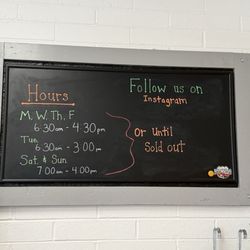 Hours
M, W, Th, F
6:30am - 4:30pm
Tue,
6:30am - 3:00pm
Sat, & Sun
7:00am - 4:00pm
Or Until
Sold out
Follow us on
Instagram